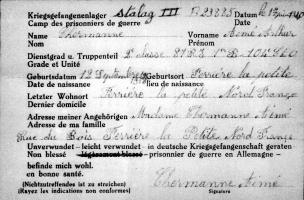 Kriegsgefangenenlager Stalag III B 23825 Datum le 1er
Camp des prisonniers de guerre Date
Name Thermanne Vorname Aimé Arthur
Nom Prénom
Dienstgrad u. Truppenteil 2e classe
Grade et Unité
Geburtsdatum 12 Septembre Geburtsort Ferrière la petite
Date de naissance lieu de naissance
Letzter Wohnort Ferrière la petite Nord France
Dernier domicile
Adresse meiner Angehörigen Madame Thermanne Aimé
Adresse de ma famille
Rue du Bois Ferrière la Petite Nord France
Unverwundet - leicht verwundet - in deutsche Kriegsgefangenschaft geraten
Non blessé - légèrement blessé - prisonnier de guerre en Allemagne -
befinde mich wohl.
en bonne santé.
(Nichtzutreffendes ist zu streichen) Thermanne Aimé
(Rayez les indications non conformes) Signature